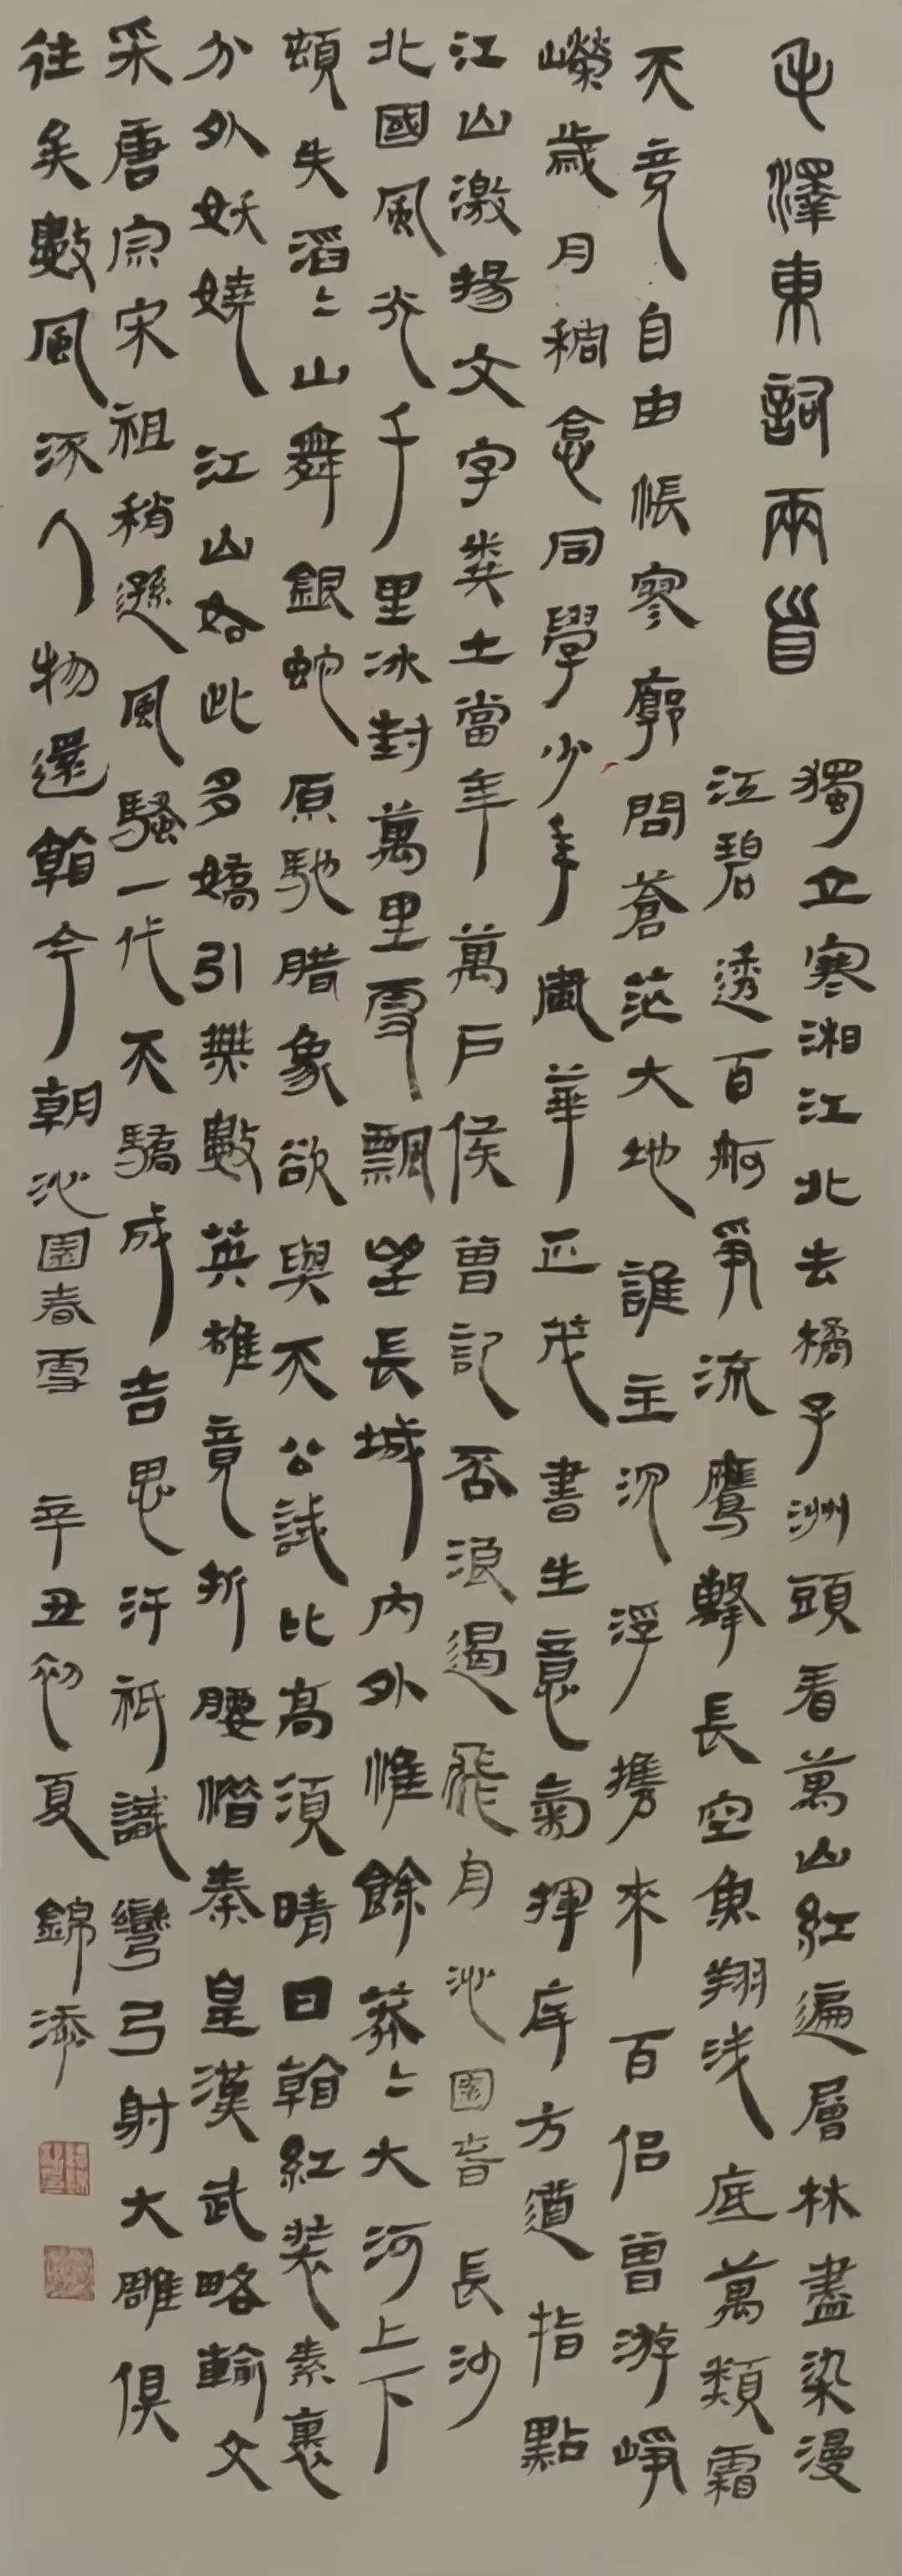 毛澤東詞兩首
獨立寒湘江北去橘子洲頭看萬山紅遍層林盡染漫
江碧透百舸爭流鷹擊長空魚翔浅底萬類霜
天竞自由悵寥廓問蒼茫大地誰主沉浮攜來百侣曾游崢
嶸歲月稠恰同學少年風華正茂書生意氣揮斥方遒指點
江山激揚文字粪土當年萬户侯曾記否浪遏飛舟沁園春長沙
北國風光千里冰封萬里雪飄望長城内外惟餘莽々大河上下
頓失滔々山舞銀蛇原馳腊象欲與天公試比高須晴日看紅装素裹
分外妖嬈江山如此多嬌引無數英雄竟折腰惜秦皇漢武略輸文
采唐宗宋祖稍遜風騷一代天驕成吉思汗祇識彎弓射大雕俱
往矣數風流人物還看今朝沁園春雪 辛丑初夏 錦添